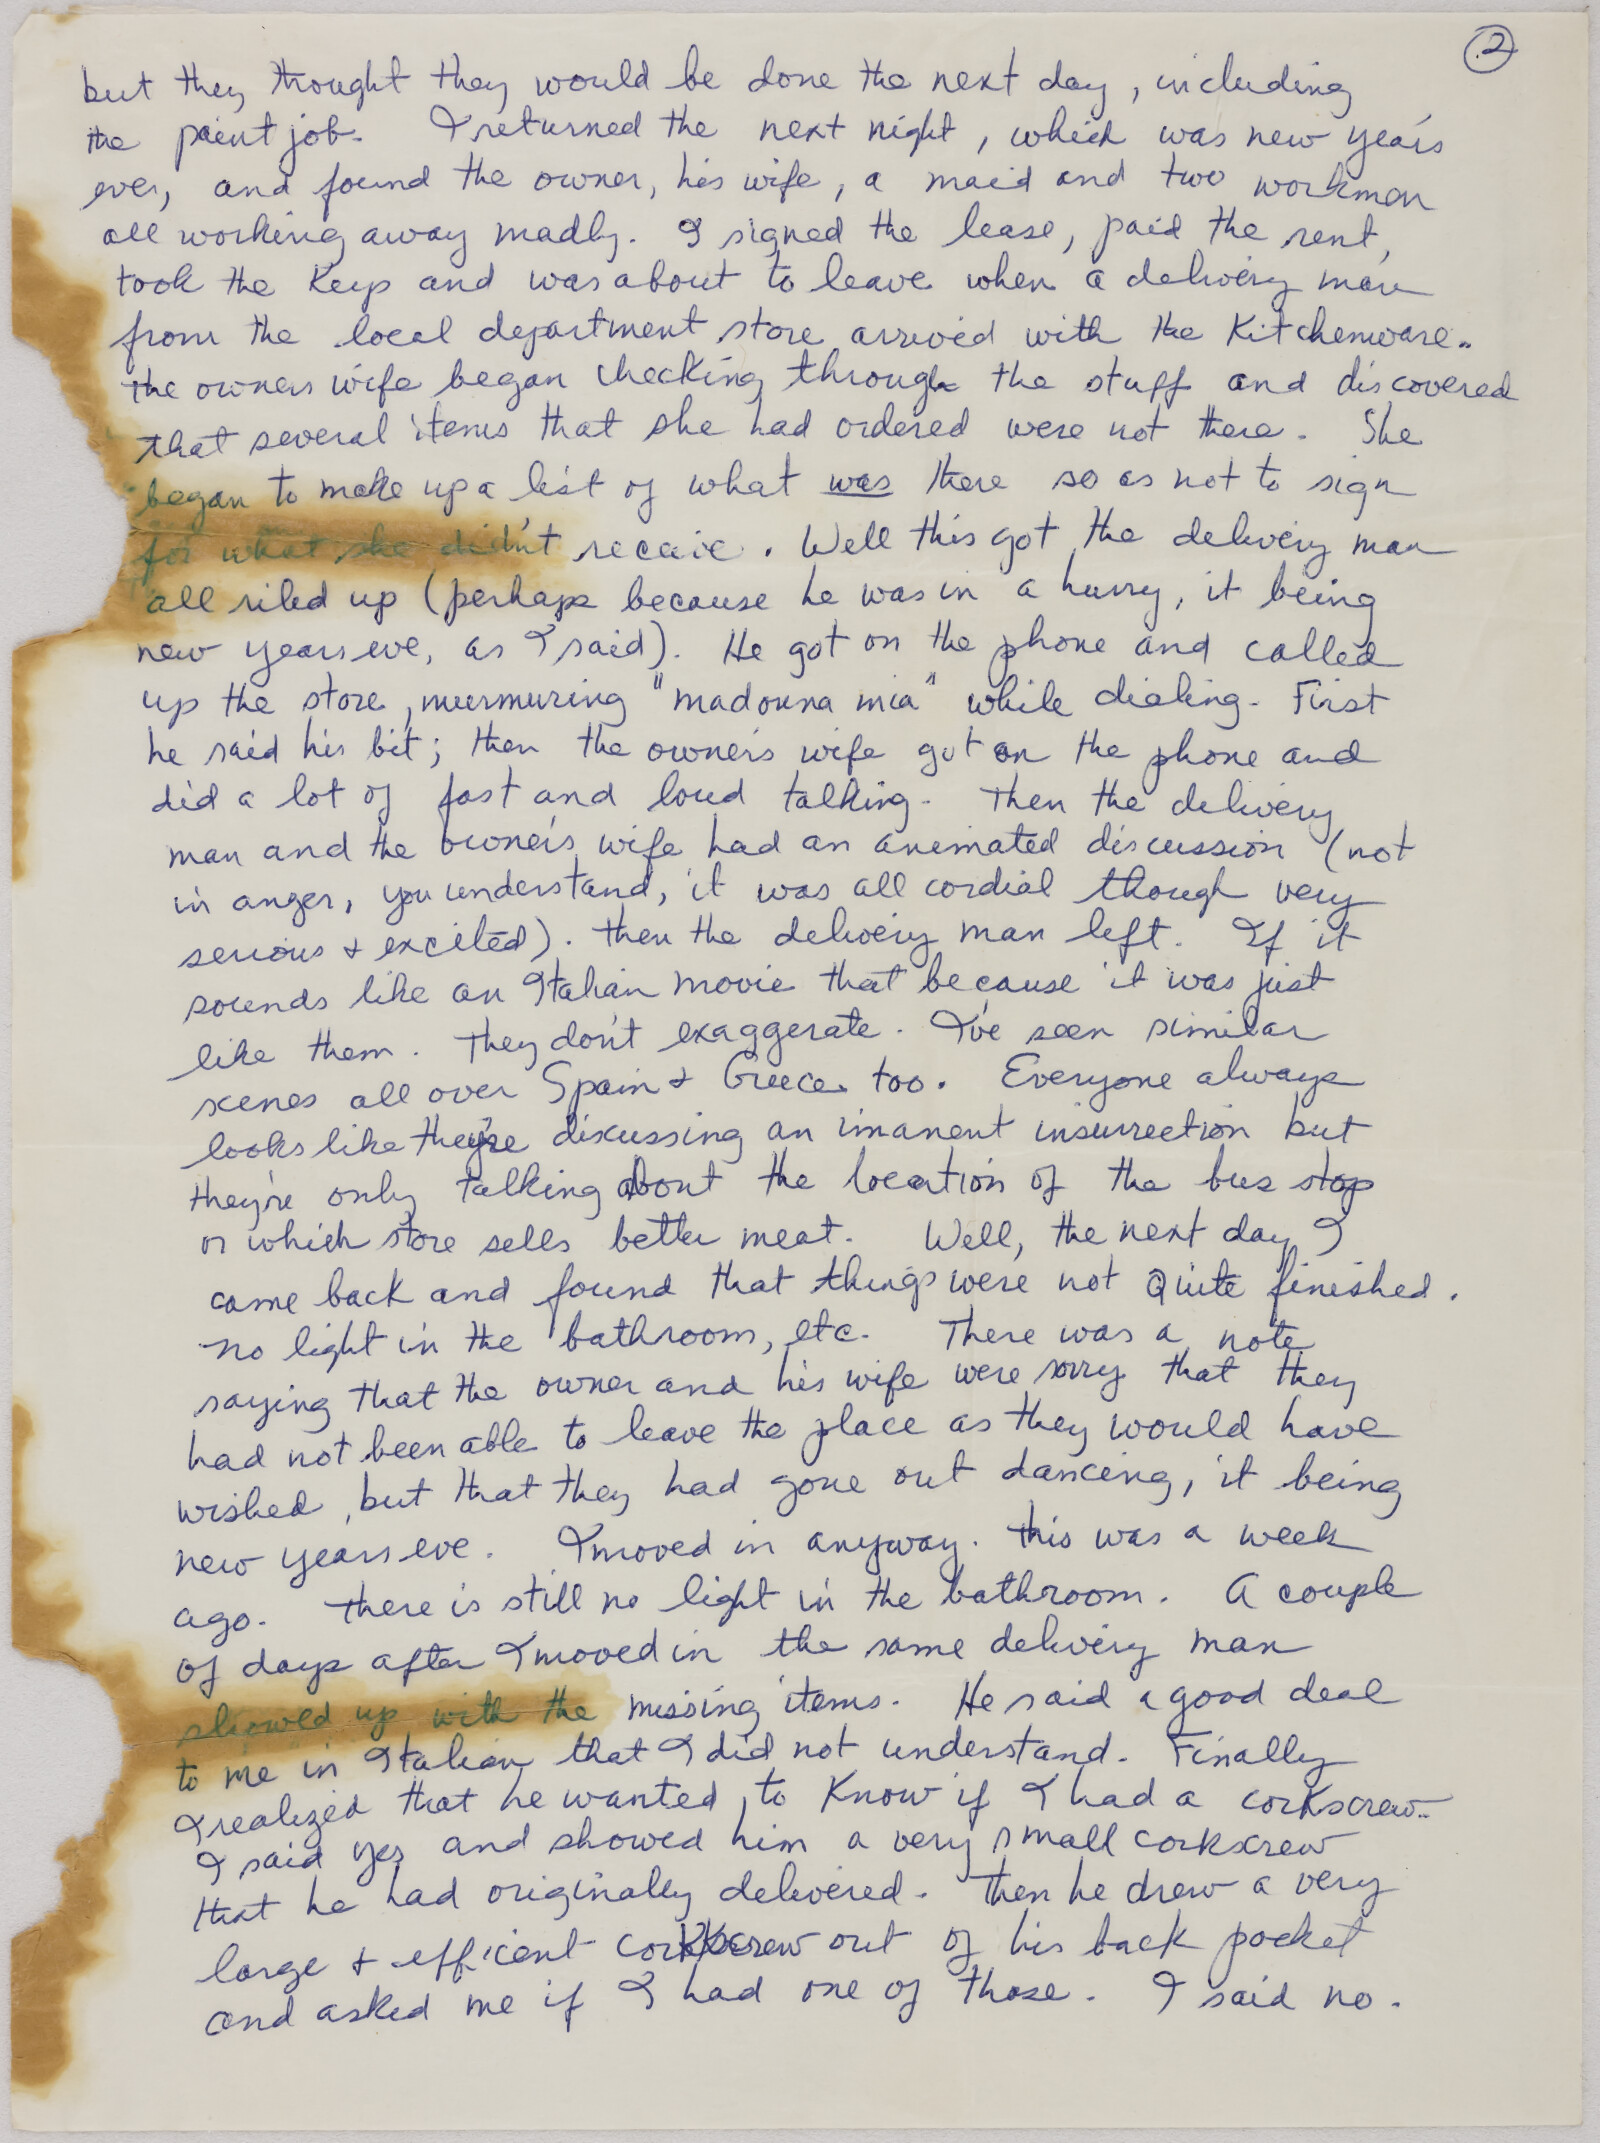 2
but they thought they would be done the next day, including
the paint job. I returned the next night, which was new year's
eve, and found the owner, his wife, a maid and two workmen
all working away madly. I signed the lease, paid the rent,
took the keys and was about to leave when a delivery man
from the local department store arrived with the kitchenware.
the owners wife began checking through the stuff and discovered
that several items that she had ordered were not there. She
began to make up a list of what was there so as not to sign
for what she didn't receive. Well this got the delivery man
all riled up (perhaps because he was in a hurry, it being
new years eve, as I said). He got on the phone and called
up the store, murmuring "madonna mia" while dialing. First
he said his bit; then the owner's wife got on the phone and
did a lot of fast and loud talking. Then the delivery
man and the owner's wife had an animated discussion (not
in anger, you understand, it was all cordial though very
serious & excited). Then the delivery man left. If it
sounds like an Italian movie that because it was just
like them. They don't exaggerate. I've seen similar
scenes all over Spain & Greece too. Everyone always
looks like they're discussing an imanent insurrection but
they're only talking about the location of the bus stop
or which store sells better meat. Well, the next day I
came back and found that things were not quite finished.
no light in the bathroom, etc. There was a note
saying that the owner and his wife were sorry that they
had not been able to leave the place as they would have
wished, but that they had gone out dancing, it being
new years eve. I moved in anyway. This was a week
ago. There is still no light in the bathroom. A couple
of days after I moved in the same delivery man
showed up with the missing items. He said a good deal
to me in Italian that I did not understand. Finally
I realized that he wanted to know if I had a corkscrew.
I said yes and showed him a very small corkscrew
that he had originally delivered. Then he drew a very
large & efficient corkscrew out of his back pocket
and asked me if I had one of those. I said no.